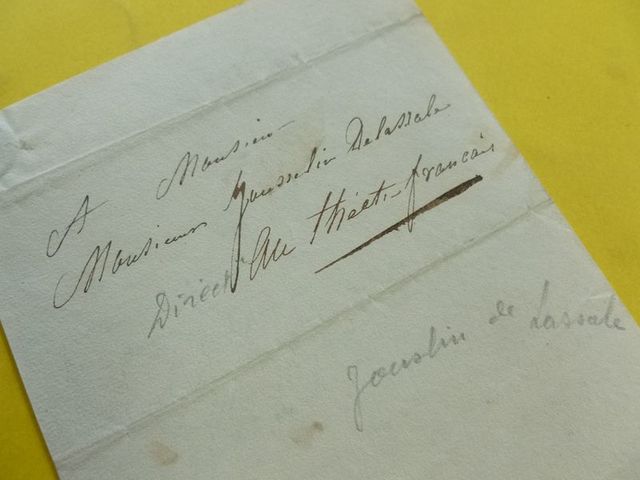 A Monsieur
Monsieur Jousselin Delassale
Direct au théât-français
Jouslin de Lassale